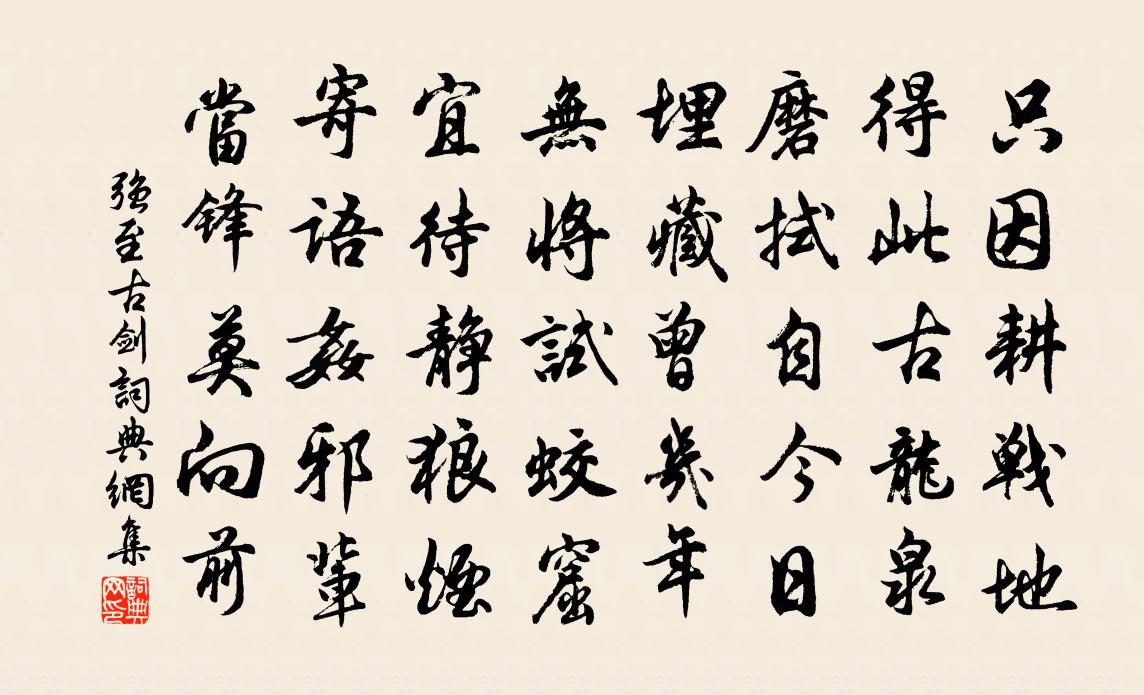 只因耕戰地
得此古龍泉
磨拭自今日
埋藏曾幾年
無將試蛟窟
宜待靜狼煙
寄語姦邪輩
當鋒莫向前
強至古劍詞典網集
詞典網印